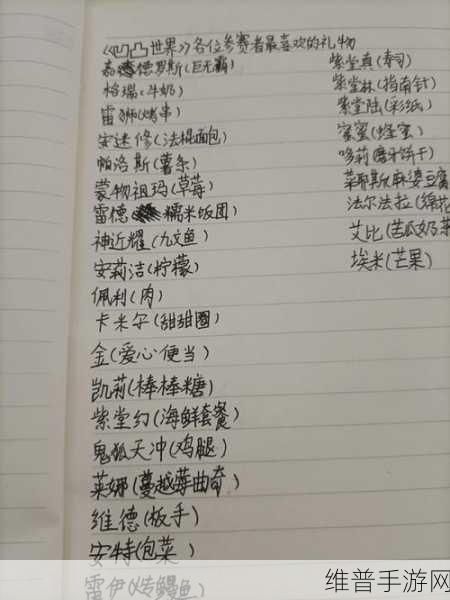 《凹凸世界》各位参赛者最喜欢的礼物
嘉德罗斯(巨无霸)
格瑞(牛奶)
雷狮(烤串)
安迷修(法棍面包)
帕洛斯(薯条)
蒙特祖玛(草莓)
雷德 糯米饭团)
神近耀(九文鱼)
安莉洁(柠檬)
佩利(肉)
卡米尔(甜甜圈)
金(爱心便当)
凯莉(棒棒糖)
紫堂幻(海鲜套餐)
鬼狐天冲(鸡腿)
莱娜(蔓越莓曲奇)
维德(板手)
安特(包菜)
雷伊(烤鳗鱼)
紫堂真(寿司)
紫堂林(指南针)
紫堂陆(彩纸)
蜜(蜂蜜)
哆莉(磨牙饼干)
莱耶斯(麻婆豆腐
法尔法拉(棉花
艾比(苦瓜奶茶
埃米(芒果)
维普手游网